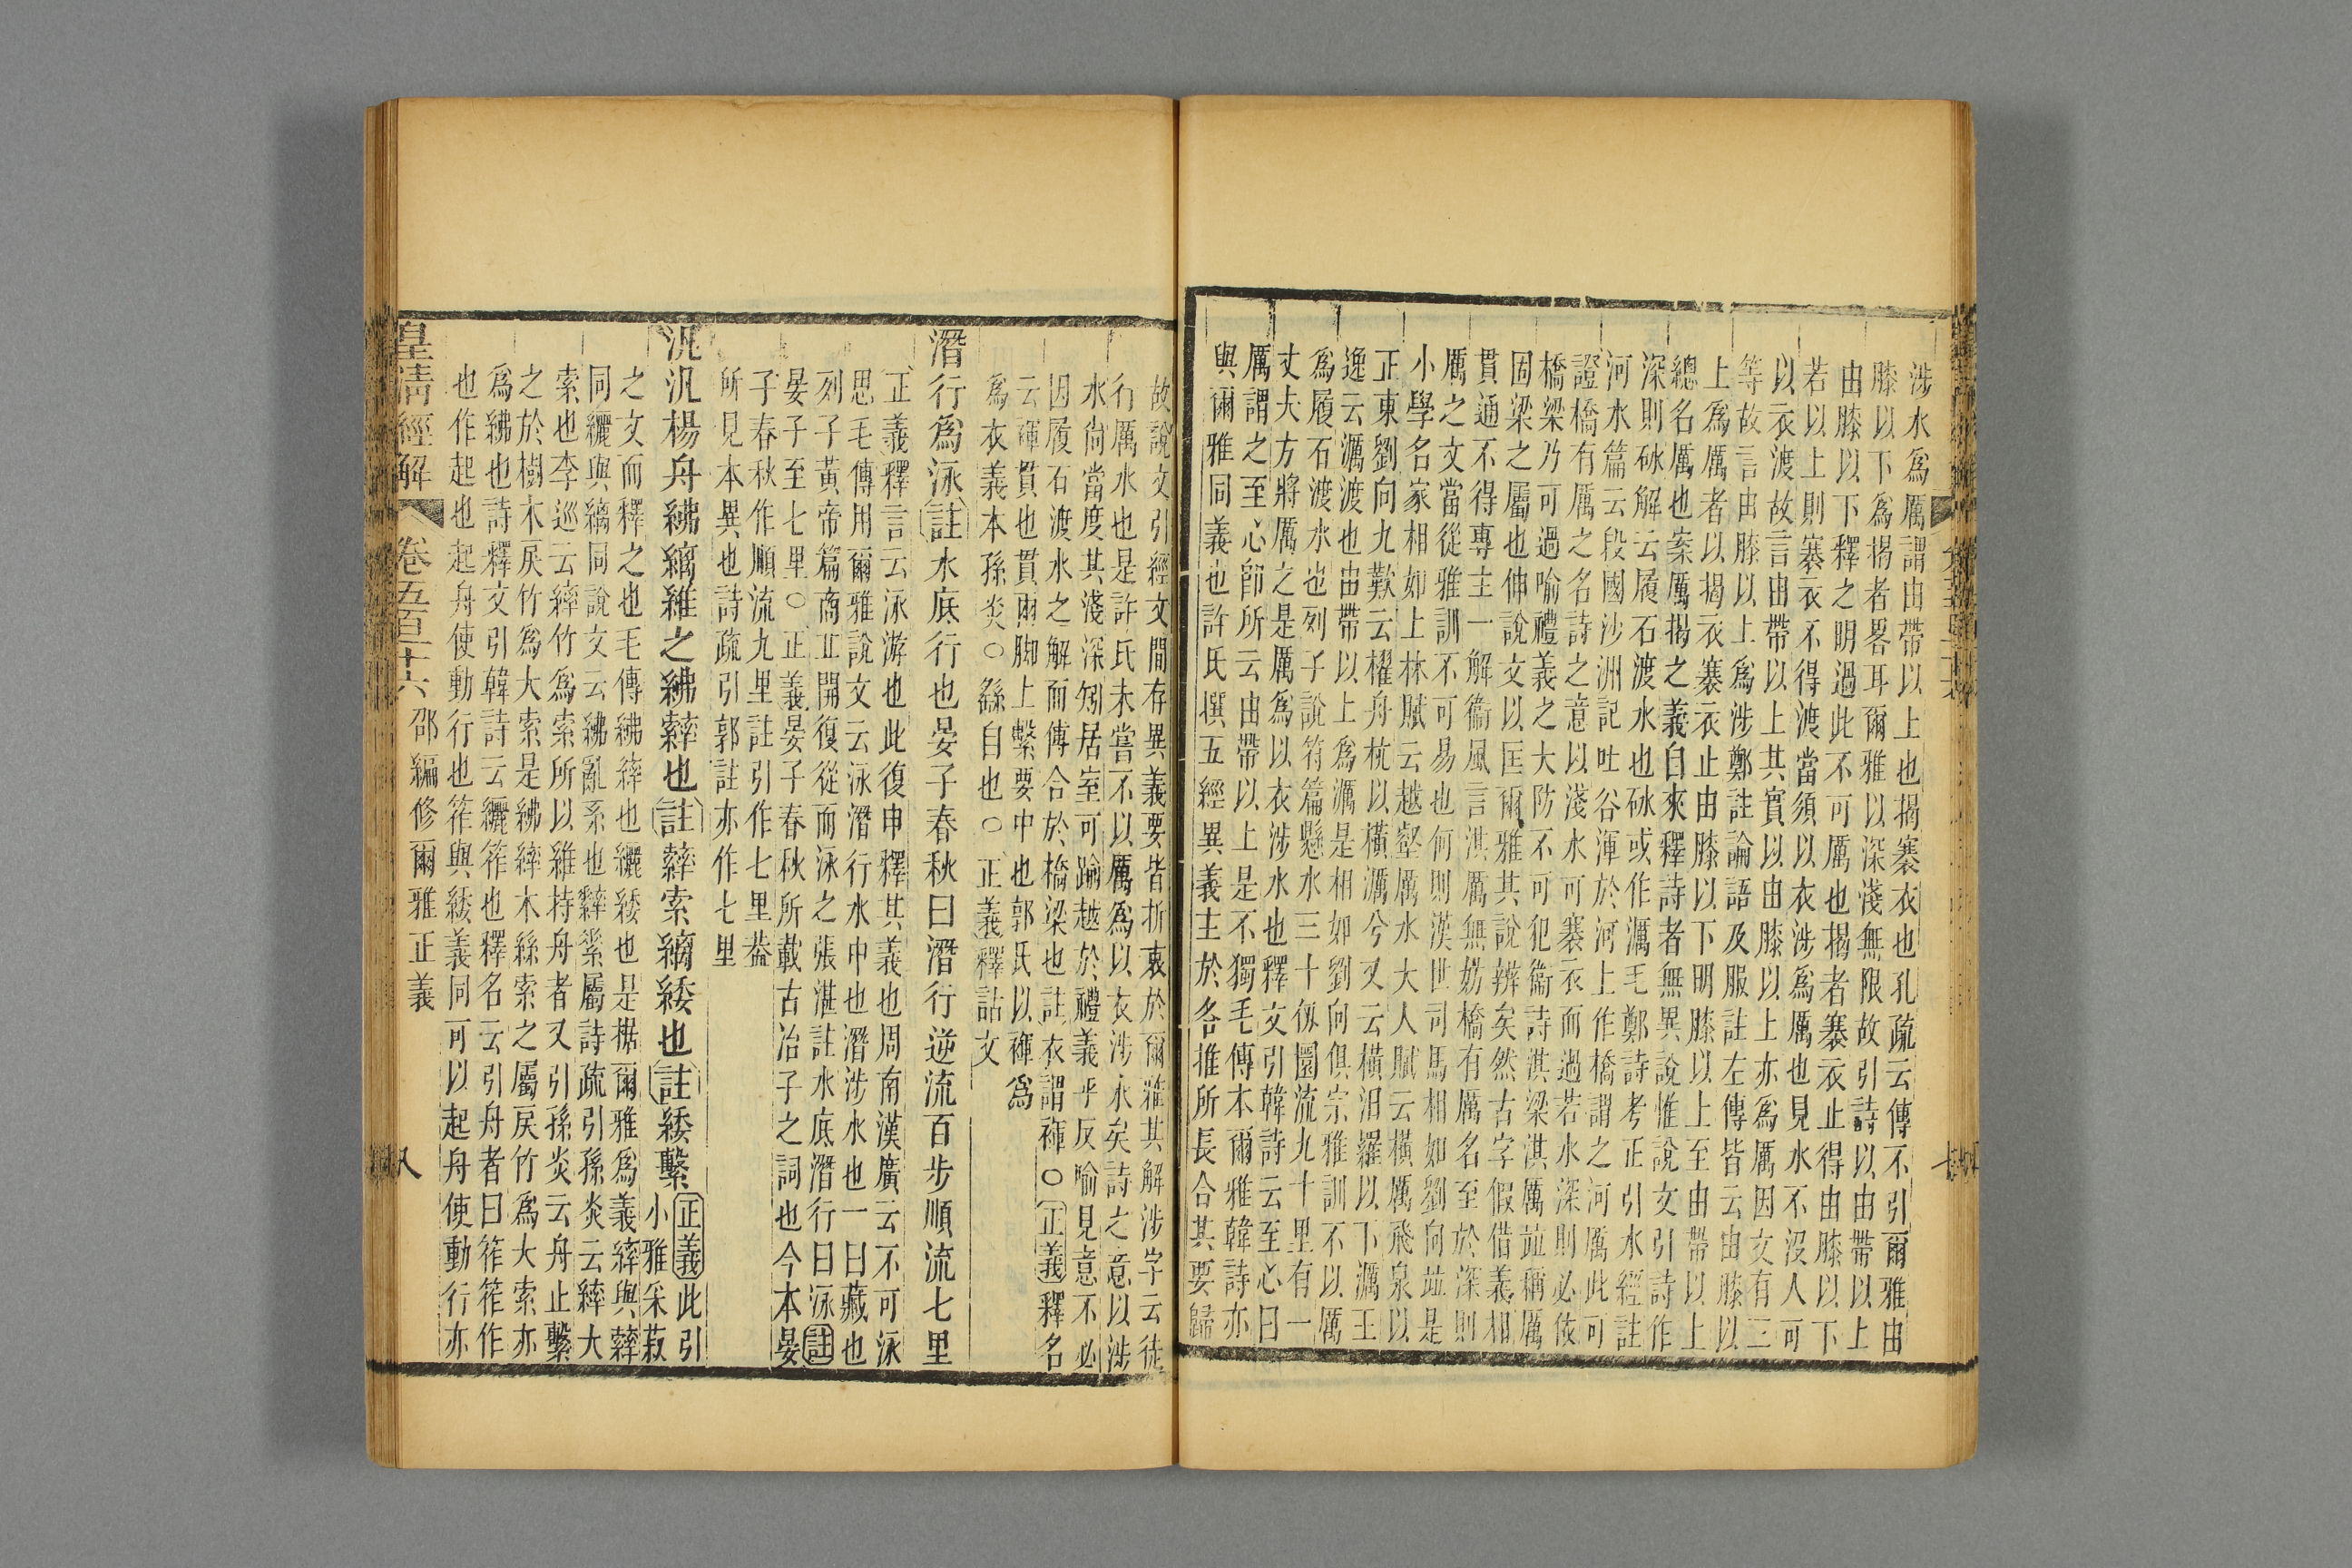 涉水爲厲謂由帶以上也揭褰衣也孔疏云傳不引爾雅由
膝以下爲揭者畧耳爾雅以深淺無限故引詩以由帶以上
由膝以下釋之明過此不可厲也揭者褰衣止得由膝以下
若以上則褰衣不得渡當須以衣涉爲厲也見水不沒人可
以衣渡故言由帶以上其實以由膝以上亦爲厲因文有三
等故言由膝以上爲涉鄭註論語及服註左傳皆云由膝以
上爲厲者以揭衣褰衣止由膝以下明膝以上至由帶以上
總名厲也案厲揭之義自來釋詩者無異說惟說文引詩作
深則砅解云履石渡水也砅或作濿毛鄭詩考正引水經註
河水篇云段國沙洲記吐谷渾於河上作橋謂之河厲此可
證橋有厲之名詩之意以淺水可褰衣而過若水深則必依
橋梁乃可過喻禮義之大防不可犯衞詩淇梁淇厲竝稱厲
固梁之屬也伸說文以匡爾雅其說辨矣然古字假借義相
貫通不得專主一解衞風言淇厲無妨橋有厲名至於深則
厲之文當從雅訓不可易也何則漢世司馬相如劉向竝是
小學名家相如上林賦云越壑厲水大人賦云橫厲飛泉以
正東劉向九歎云櫂舟杭以橫濿兮又云橫汨羅以下濿王
逸云濿渡也由帶以上爲濿是相如劉向俱宗雅訓不以厲
爲履石渡水也列子說符篇懸水三十仞圜流九十里有一
丈夫方將厲之是厲爲以衣涉水也釋文引韓詩云至心曰
厲謂之至心卽所云由帶以上是不獨毛傳本爾雅韓詩亦
與爾雅同義也許氏撰五經異義主於各推所長合其要歸
故說文引經文間存異義要皆折衷於爾雅其解涉字云徒
行厲水也是許氏未嘗不以厲爲以衣涉水矣詩之意以涉
水尙當度其淺深矧居室可踰越於禮義乎反喻見意不必
因履石渡水之解而傳合於橋梁也註衣謂褌○正義釋名
云褌貫也貫兩脚上繫要中也郭氏以褌爲
爲衣義本孫炎○繇自也○正義釋詁文
潛行爲泳註水底行也晏子春秋曰潛行逆流百步順流七里
正義釋言云泳游也此復申釋其義也周南漢廣云不可泳
思毛傳用爾雅說文云泳潛行水中也潛涉水也一曰藏也
列子黃帝篇商丘開復從而泳之張湛註水底潛行曰泳註
晏子至七里○正義晏子春秋所載古冶子之詞也今本晏
子春秋作順流九里註引作七里葢
所見本異也詩疏引郭註亦作七里
汎汎楊舟紼縭維之紼䋏也註䋏索縭緌也註緌繫正義此引
小雅采菽
之文而釋之也毛傳紼繂也纚緌也是據爾雅爲義繂與䋏
同纚與縭同說文云紼亂系也䋏素屬詩疏引孫炎云繂大
索也李巡云繂竹爲索所以維持舟者又引孫炎云舟止繫
之於樹木戾竹爲大索是紼繂木絲索之屬戾竹爲大索亦
爲紼也詩釋文引韓詩云纚筰也釋名云引舟者曰筰筰作
也作起也起舟使動行也筰與緌義同可以起舟使動行亦
皇清經解 卷五百十六 邵編修爾雅正義 八